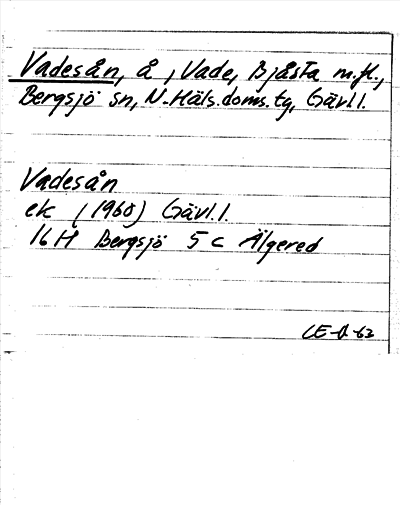 Vadesån, å, Vade, Bjåsta m.fl.,
Bergsjö sn, N. Häls. doms. tg, Gävl.l.
Vadesån
ek (1960) Gävl.l.
16 H Bergsjö 5 c Älgered